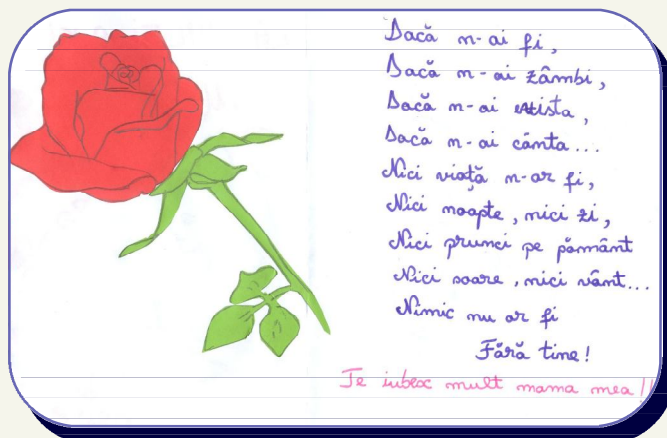 Dacă n-ai fi,
Dacă n-ai zâmbi,
Dacă n-ai exista,
Dacă n-ai cânta...
Nici viață n-ar fi,
Nici noapte, nici zi,
Nici prunci pe pământ
Nici soare, nici vânt...
Nimic nu ar fi
Fără tine!
Te iubesc mult mama mea!!